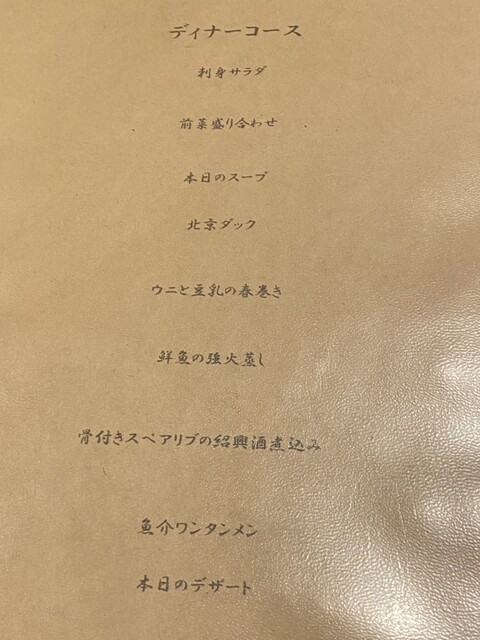 ディナーコース
刺身サラダ
前菜盛り合わせ
本日のスープ
北京ダック
ウニと豆乳の春巻き
鮮魚の強火蒸し
骨付きスペアリブの紹興酒煮込み
魚介ワンタンメン
本日のデザート